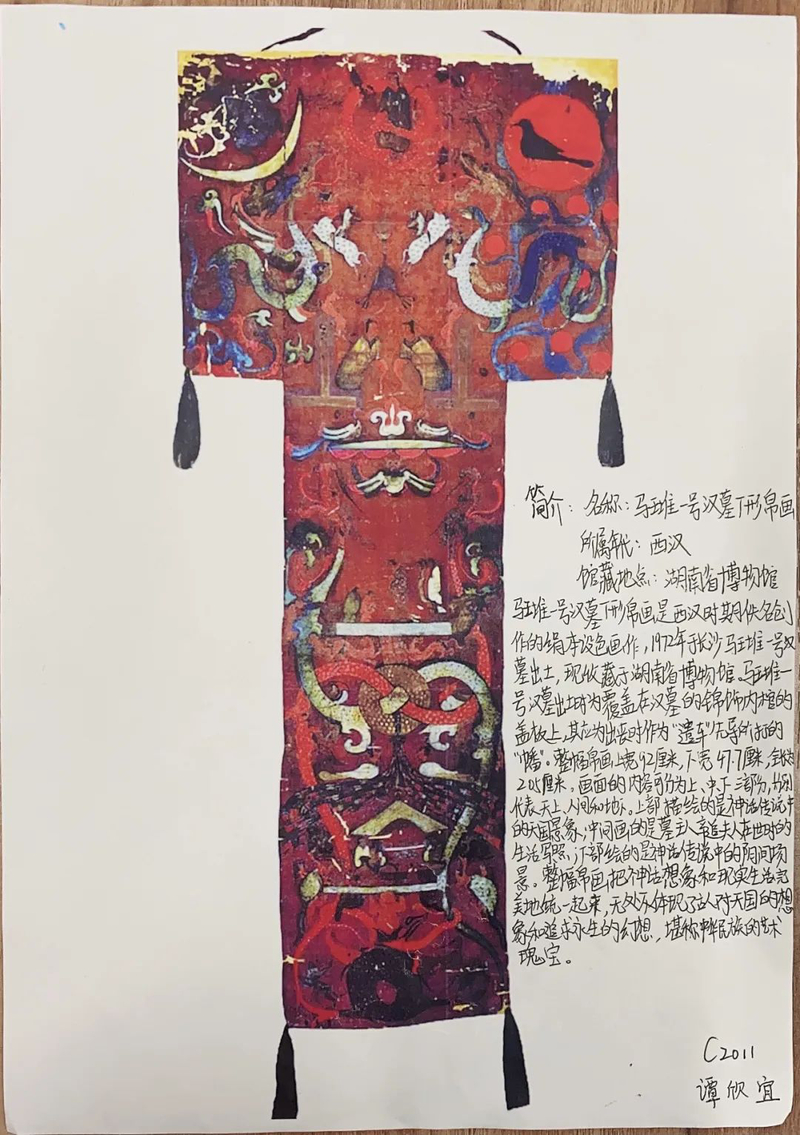 简介：名称：马王堆一号汉墓T形帛画
所属年代：西汉
馆藏地点：湖南省博物馆
马王堆一号汉墓T形帛画是西汉时期佚名创
作的绢本设色画作，1972年于长沙马王堆一号汉
墓出土，现收藏于湖南省博物馆。马王堆一
号汉墓出土时为覆盖在汉墓的锦饰内棺的
盖板上，其应为出丧时作为“遣车”先导所打的
“幡”。整幅帛画上宽92厘米，下宽47.7厘米，全长为
205厘米。画面的内容可份为上、中、下三部分，分别
代表天上、人间和地下。上部描绘的是神话传说中
的天国景象，中间画的是墓主人辛追夫人在世时的
生活写照，下部绘的是神话传说中的阴间场
景。整幅帛画把神话想象和现实生活完
美地统一起来，无处不体现了古人对天国的想
象和追求永生的幻想，堪称中华民族的艺术
瑰宝。
C2011
谭欣宜